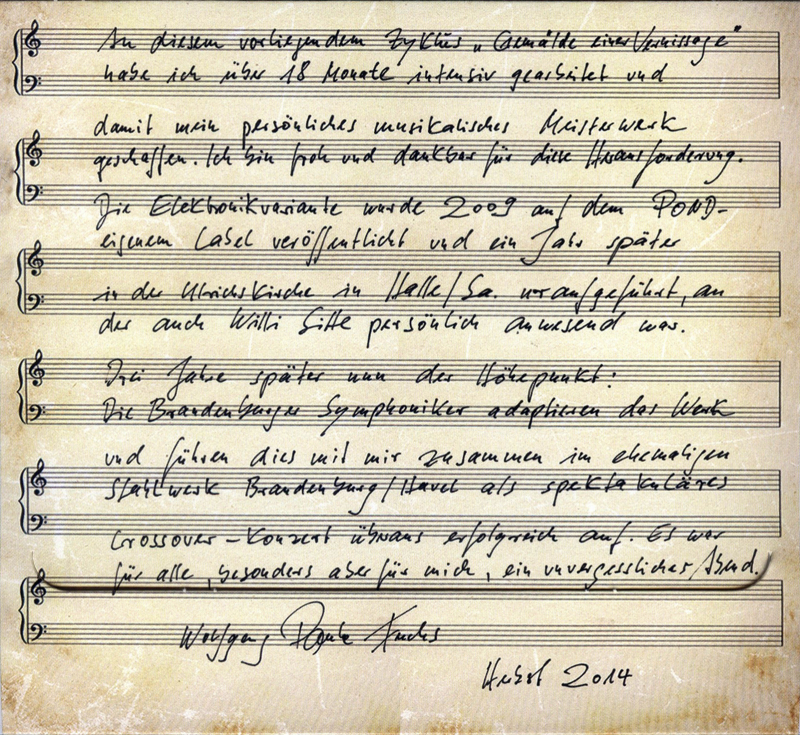 An diesem vorliegendem Zyklus „Gemälde einer Vernissage"
habe ich über 18 Monate intensiv gearbeitet und
damit mein persönliches musikalisches Meisterwerk
geschaffen. Ich bin froh und dankbar für diese Herausforderung.
Die Elektronikvariante wurde 2009 auf dem POND-
eigenem Label veröffentlicht und ein Jahr später
in der Ulrichskirche in Halle/Sa. uraufgeführt, an
der auch Willi Sitte persönlich anwesend war.
Drei Jahre später nun der Höhepunkt:
Die Brandenburger Symphoniker adaptieren das Werk
und führen dies mit mir zusammen im ehemaligen
Stahlwerk Brandenburg/Havel als spektakuläres
Crossover-Konzert überaus erfolgreich auf. Es war
für alle, besonders aber für mich, ein unvergessliches Abend.
Wolfgang Fuchs
Herbst 2014